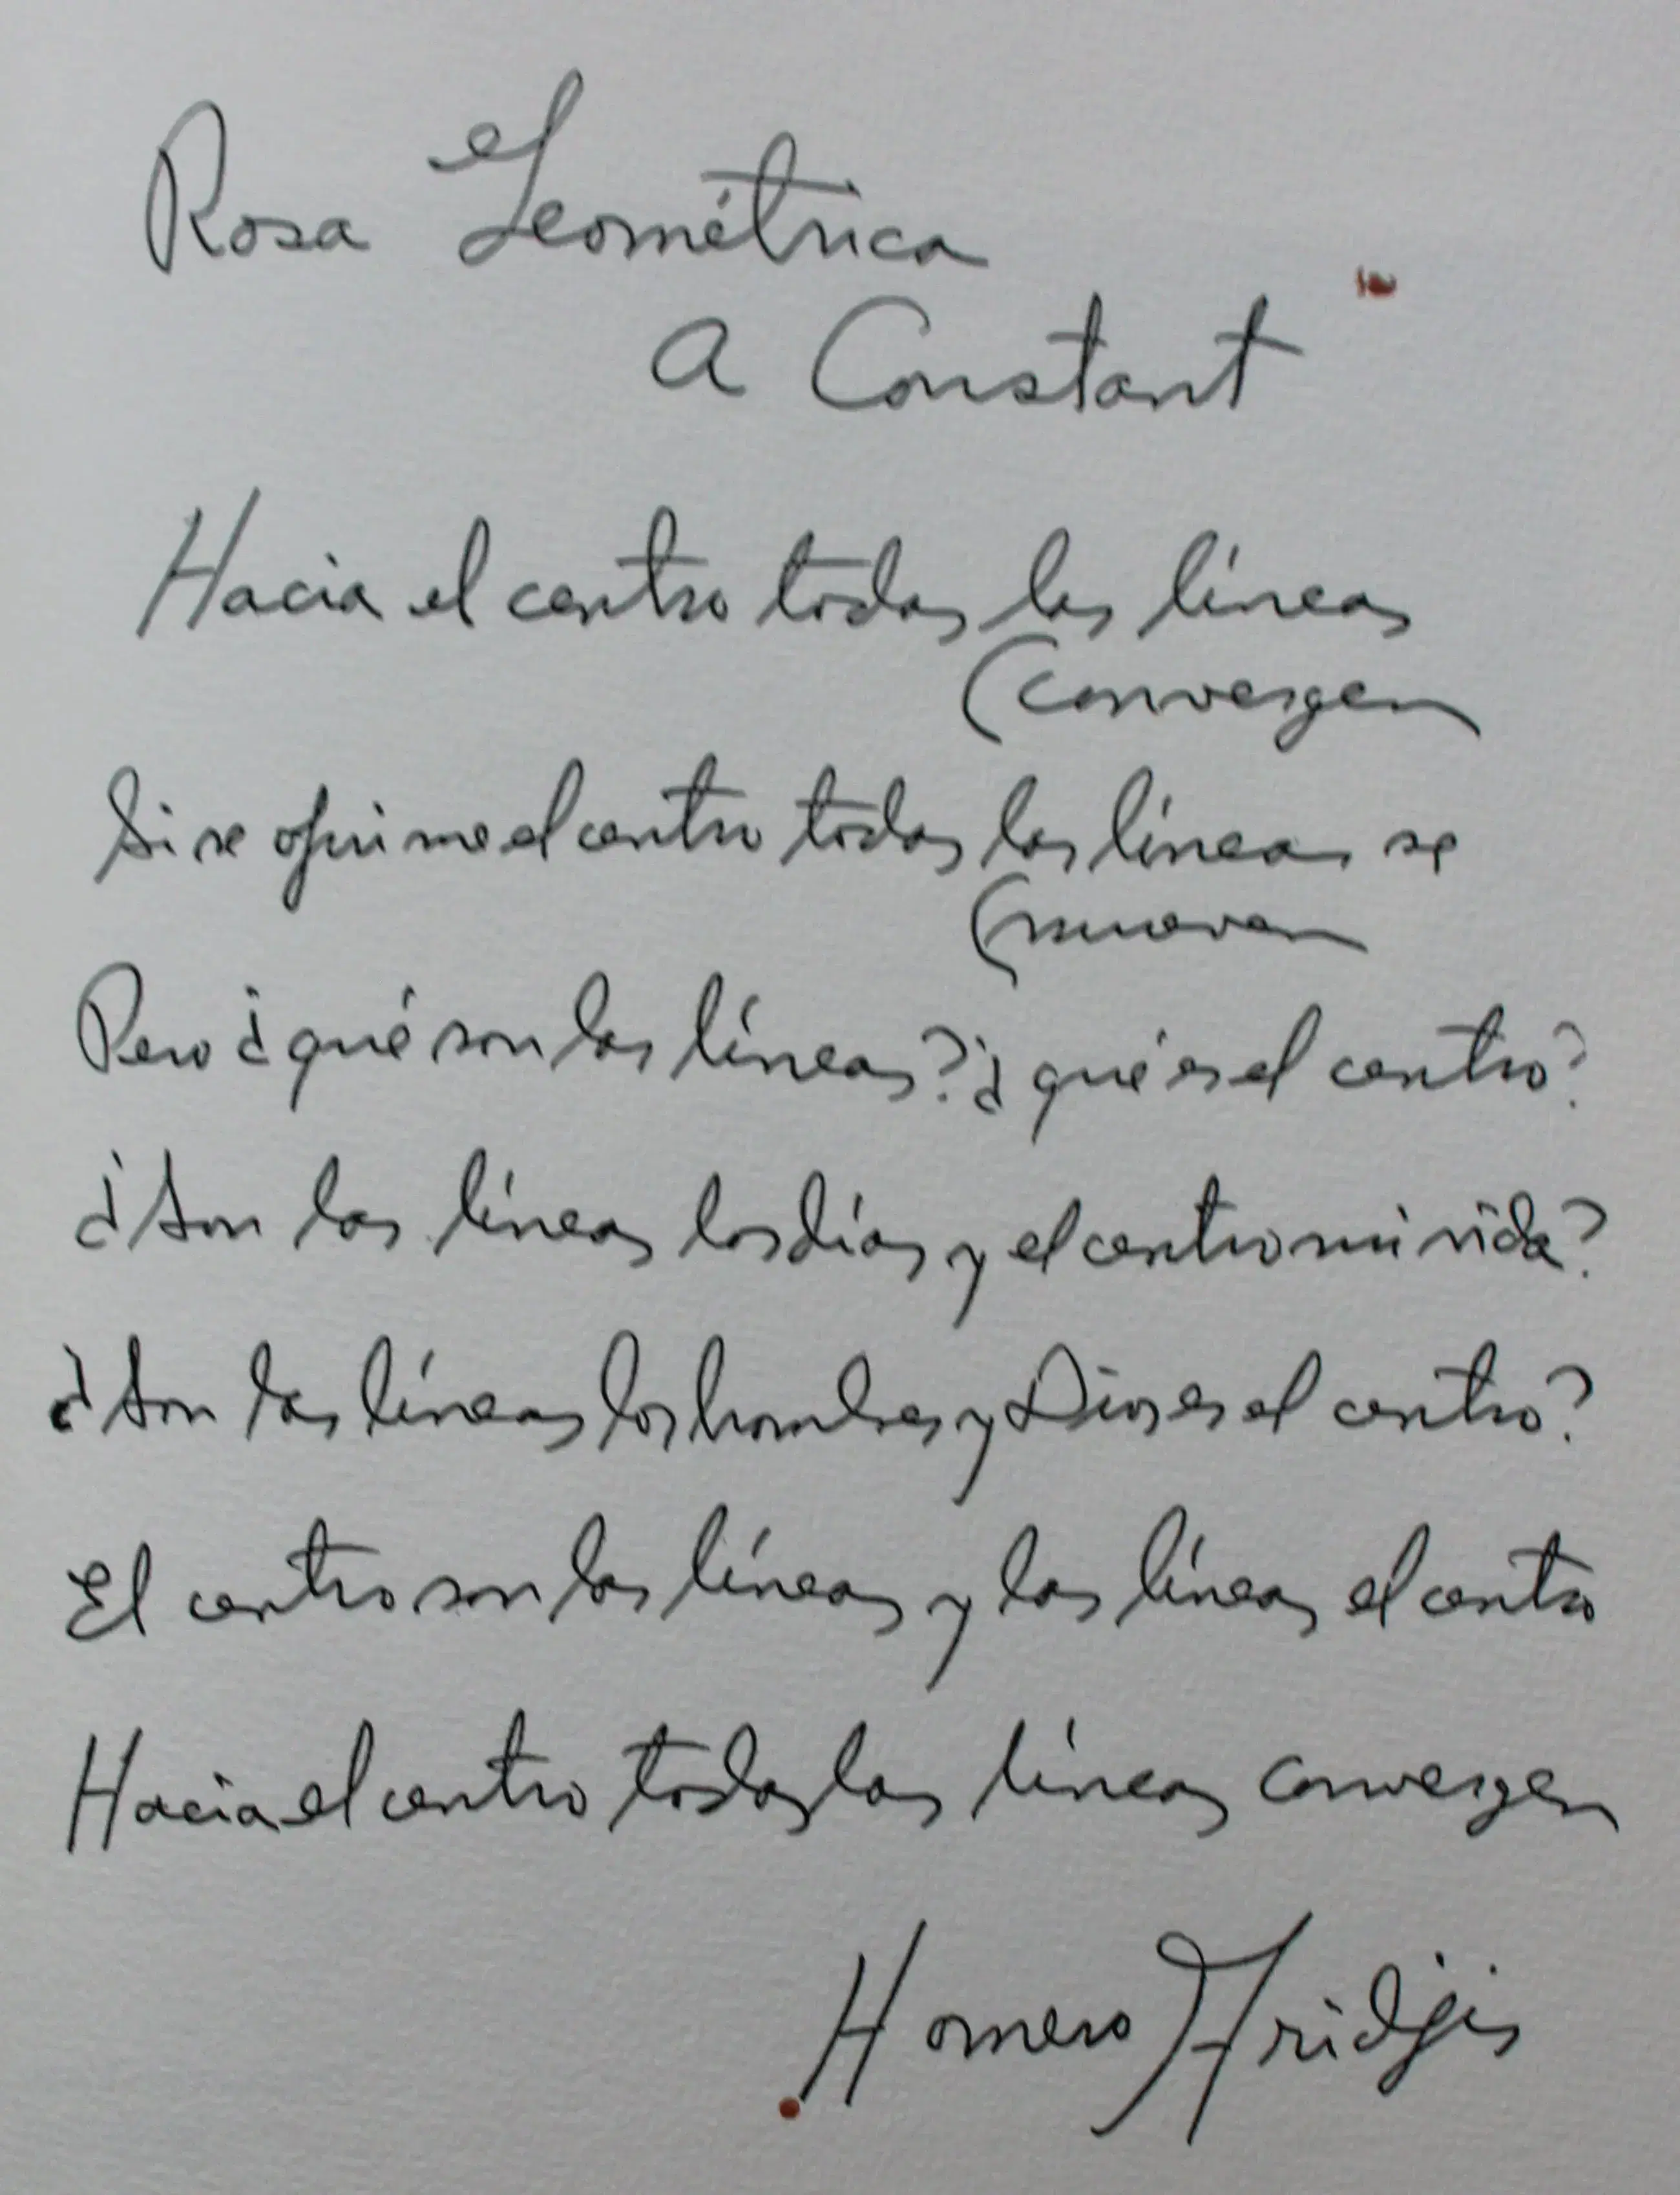 Rosa Geométrica
A Constant
Hacia el centro todas las líneas
(convergen
Si se oprime el centro todas las líneas se
(mueven
Pero ¿qué son las líneas? ¿qué es el centro?
¿Son las líneas los días y el centro mi vida?
¿Son las líneas los hombres y Dios es el centro?
El centro son las líneas y las líneas el centro
Hacia el centro todas las líneas convergen
Homero Aridjis